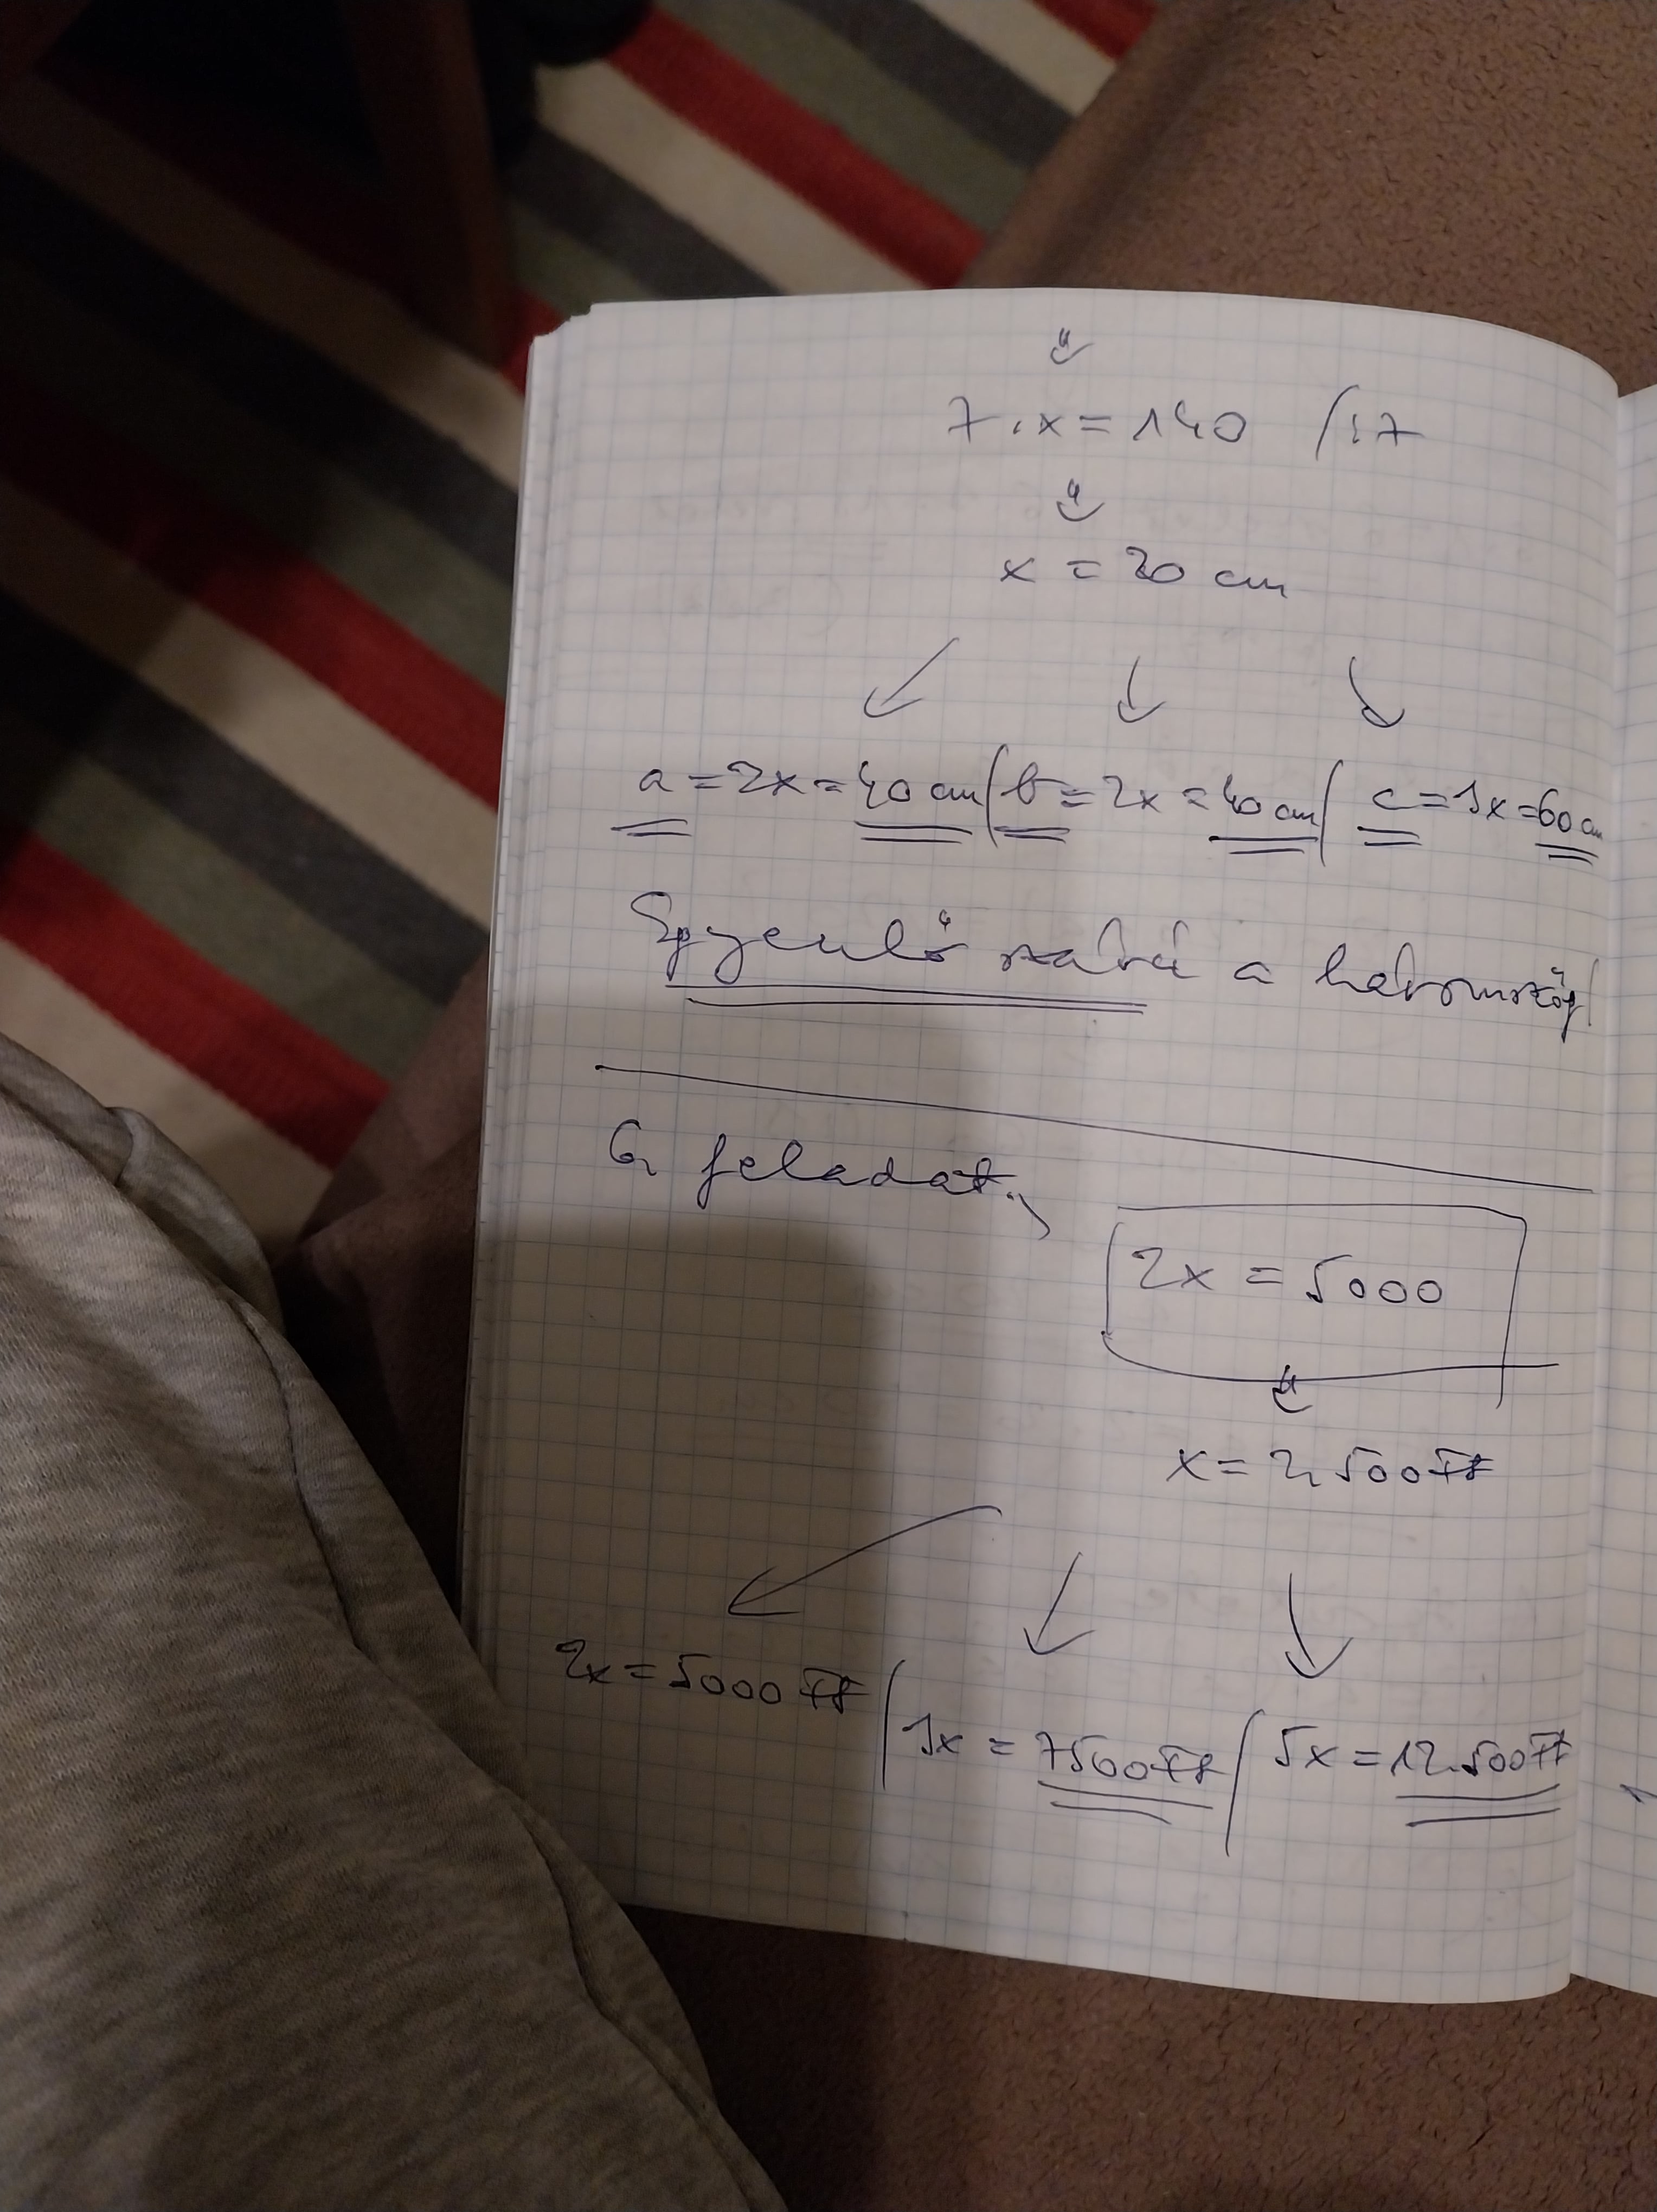 7·x = 140 /:7
x = 20 cm
a = 2x = 40 cm / b = 2x = 40 cm / c = 3x = 60 cm
Egyenlő szárú a háromszög!
6, feladat.,
2x = 5000
x = 2,500 Ft
2x = 5000 Ft / 3x = 7500 Ft / 5x = 12.500 Ft